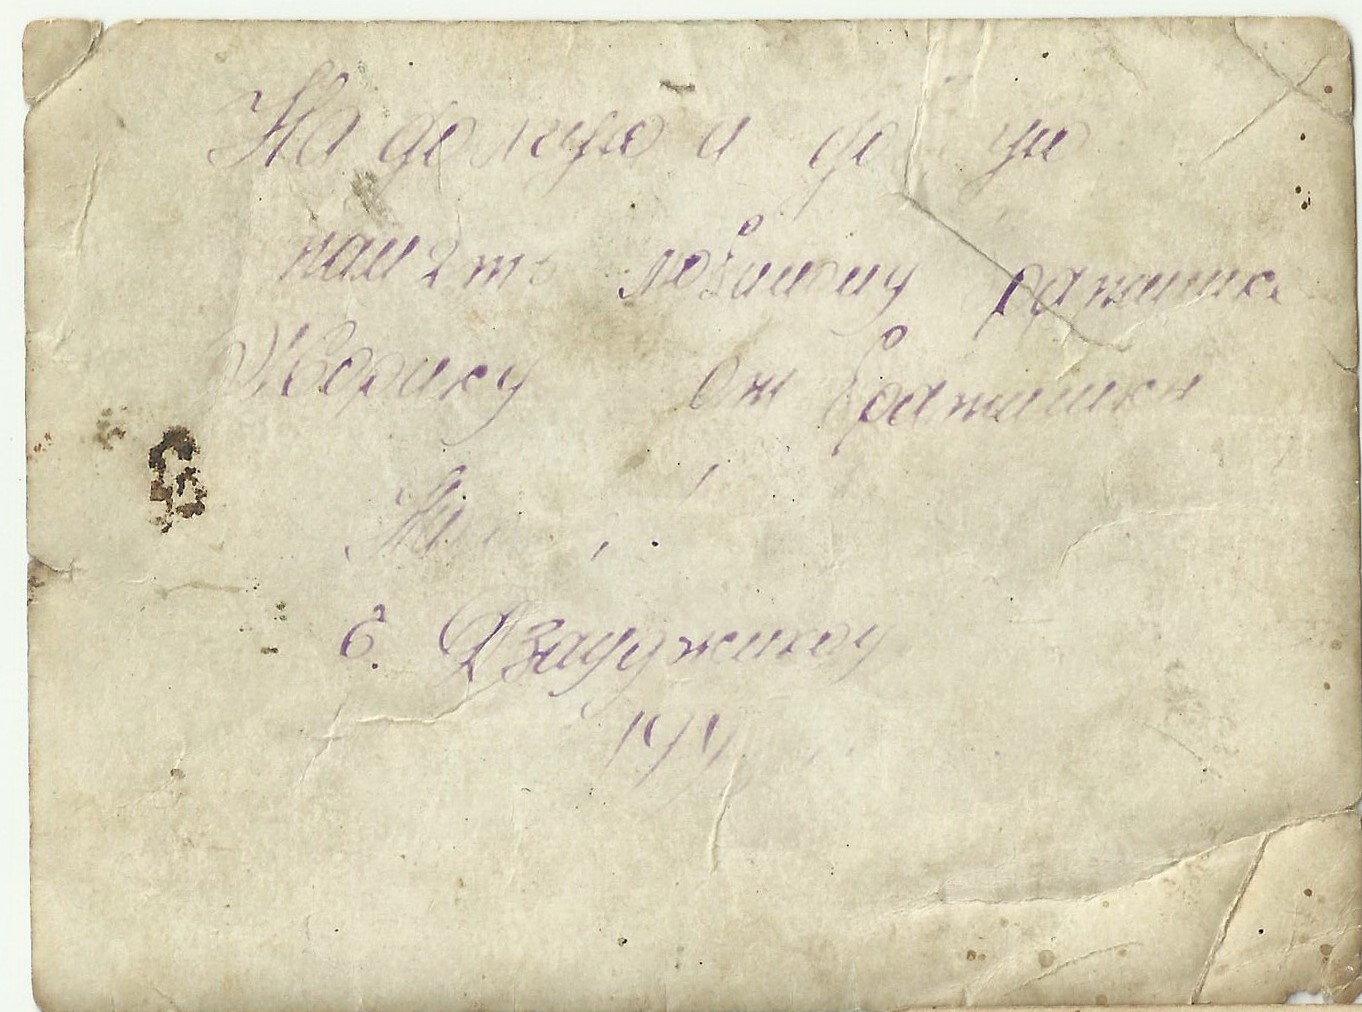 На долгую и до ую
память любимому братишке
Жорику от братишки
г. Дзауджикау
194